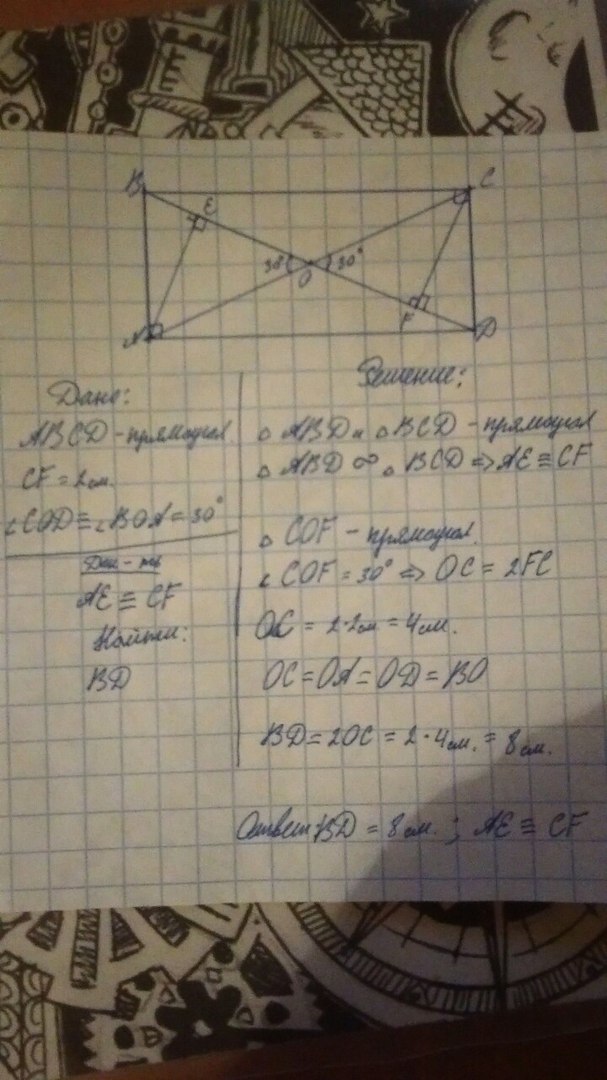 B
C
E
30°
O
30°
F
A
D
Дано:
ABCD - прямоугол
CF = 2 см.
∠COD ≡ ∠BOA = 30°
Док-ть
AE ≡ CF
Найти:
BD
Решение:
△ ABD и △ BCD - прямоугол
△ ABD ∞ △ BCD => AE ≡ CF
△ COF - прямоугол.
∠ COF = 30° => OC = 2FC
OC = 2·2см = 4см.
OC = OA = OD = BO
BD = 2OC = 2·4см. = 8см.
Ответ: BD = 8 см. ; AE ≡ CF